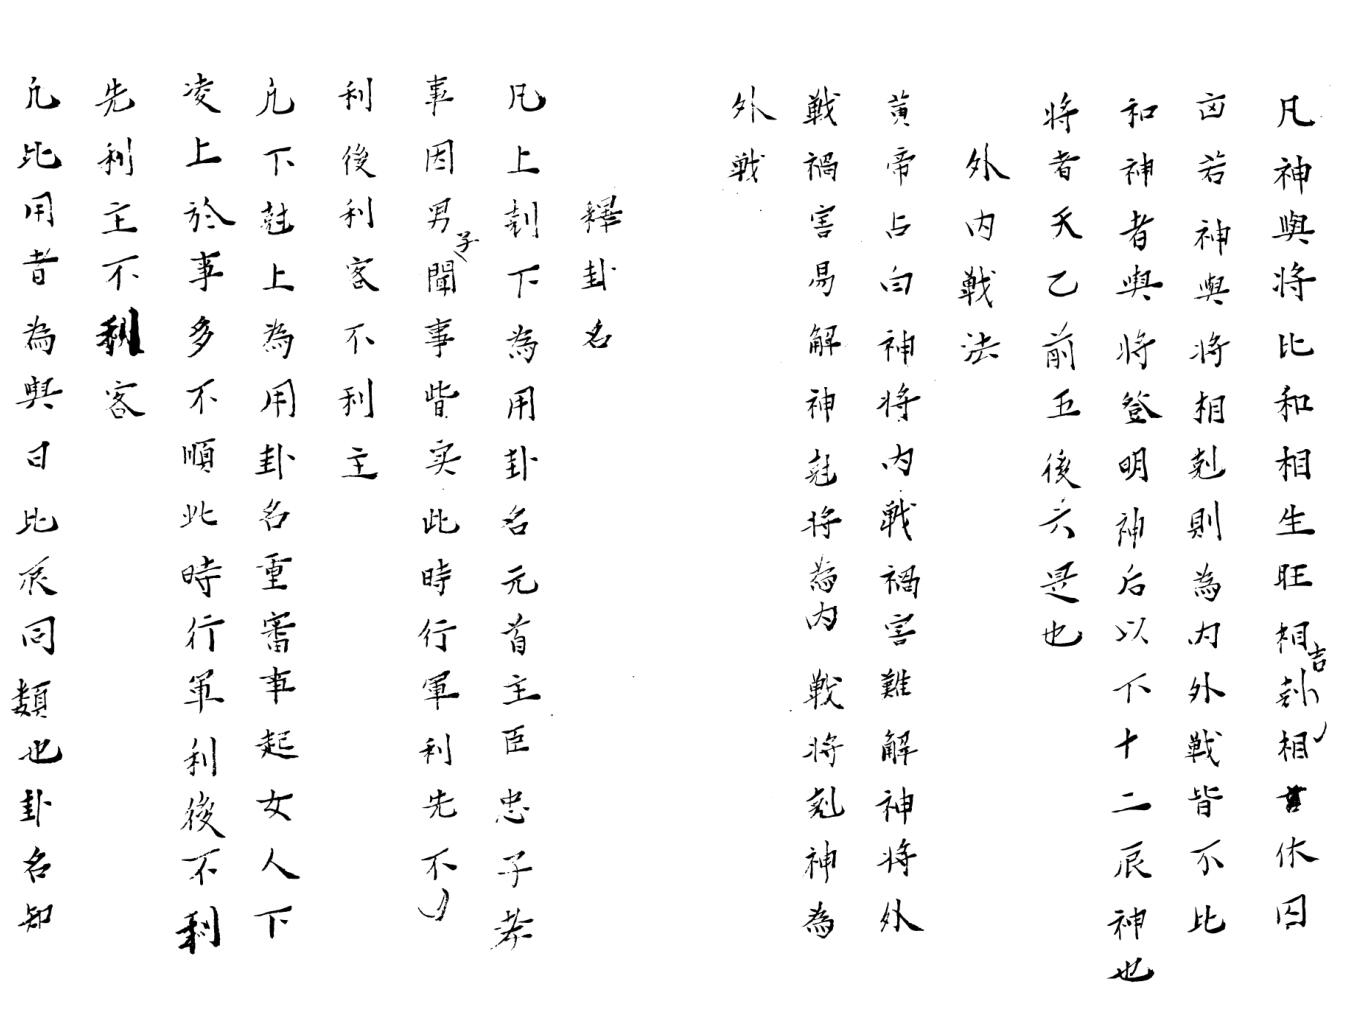 凡神與將比和相生旺相吉剋相害休囚
凶若神與將相剋則為內外戰皆不比
和神者與將登明神后以下十二辰神也
將者天乙前五後六是也
外內戰法
黃帝占曰神將內戰禍害難解神將外
戰禍害易解神剋將為內戰將剋神為
外戰
釋卦名
凡上剋下為用卦名元首主臣忠子孝
事因男子聞事皆实此時行軍利先不
利後利客不利主
凡下剋上為用卦名重審事起女人下
凌上於事多不順此時行軍利後不利
先利主不利客
凡比用者為與日比辰同類也卦名知